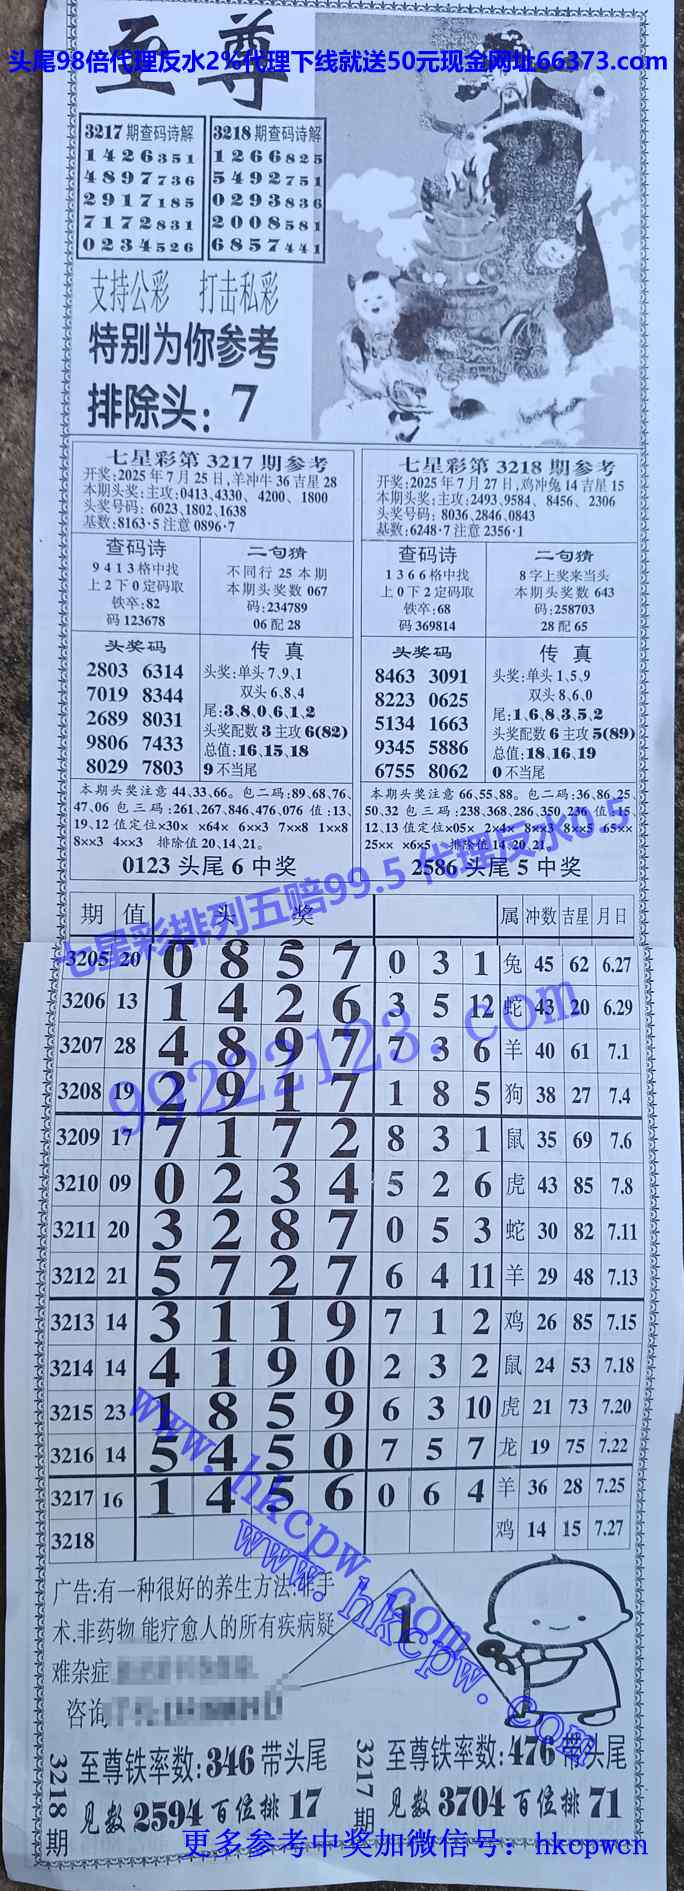 至尊
头尾98倍代理反水2%代理下线就送50元现金网址66373.com
3217期查码诗解
1426351
4897736
2917185
7172831
0234526
3218期查码诗解
1266825
5492751
0293836
2008581
6857441
支持公彩 打击私彩
特别为你参考
排除头:7
七星彩第3217期参考
开奖:2025年7月25日,羊冲牛36吉星28
本期头奖:主攻:0413,4330、4200、1800
头奖号码: 6023,1802,1638
基数:8163·5注意0896·7
查码诗
9413格中找
上2下0定码取
铁卒:82
码123678
二句猜
不同行25本期
本期头奖数067
码:234789
06配28
头奖码
2803 6314
7019 8344
2689 8031
9806 7433
8029 7803
传真
头奖:单头7、9、1
双头6、8、4
尾:3、8、0、6、1、2
头奖配数3主攻6(82)
总值:16、15、18
9不当尾
本期头奖注意44、33、66。包二码:89、68、76、
47、06包三码:261、267、846、476、076值:13、
19、12值定位×30× ×64× 6××3 7××8 1××8
8××3 4××3 排除值20、14、21。
0123头尾6中奖
七星彩第3218期参考
开奖:2025年7月27日,鸡冲兔14吉星15
本期头奖:主攻:2493,9584、8456、2306
头奖号码: 8036,2846,0843
基数:6248·7注意2356·1
查码诗
1366格中找
上0下2定码取
铁卒:68
码369814
二句猜
8字上奖来当头
本期头奖数643
码:258703
28配65
头奖码
8463 3091
8223 0625
5134 1663
9345 5886
6755 8062
传真
头奖:单头1、5、9
双头8、6、0
尾:1、6、8、3、5、2
头奖配数6主攻5(89)
总值:18、16、19
0不当尾
本期头奖注意66、55、88。包二码:36、86、25、
50、32包三码:238、368、286、350、236值:15、
12、13值定位×05× 2×4× 8××3 8××5 65××
25×× ×6×5 排除值14、20、21。
2586头尾5中奖
七星彩排列五赔99.5 代理反水0.5
99222123.com
期 值 头奖 属 冲数 吉星 月日
3205 20 0 8 5 7 0 3 1 兔 45 62 6.27
3206 13 1 4 2 6 3 5 12 蛇 43 20 6.29
3207 28 4 8 9 7 7 3 6 羊 40 61 7.1
3208 19 2 9 1 7 1 8 5 狗 38 27 7.4
3209 17 7 1 7 2 8 3 1 鼠 35 69 7.6
3210 09 0 2 3 4 5 2 6 虎 43 85 7.8
3211 20 3 2 8 7 0 5 3 蛇 30 82 7.11
3212 21 5 7 2 7 6 4 11 羊 29 48 7.13
3213 14 3 1 1 9 7 1 2 鸡 26 85 7.15
3214 14 4 1 9 0 2 3 2 鼠 24 53 7.18
3215 23 1 8 5 9 6 3 10 虎 21 73 7.20
3216 14 5 4 5 0 7 5 7 龙 19 75 7.22
3217 16 1 4 5 6 0 6 4 羊 36 28 7.25
3218 鸡 14 15 7.27
www.hkcpw.com
www.hkcpw.com
广告:有一种很好的养生方法.非手
术.非药物 能疗愈人的所有疾病疑
难杂症
咨询
1
3218期
至尊铁率数:346带头尾
见数2594百位排17
3217期
至尊铁率数:476带头尾
见数3704百位排71
更多参考中奖加微信号:hkcpwcn